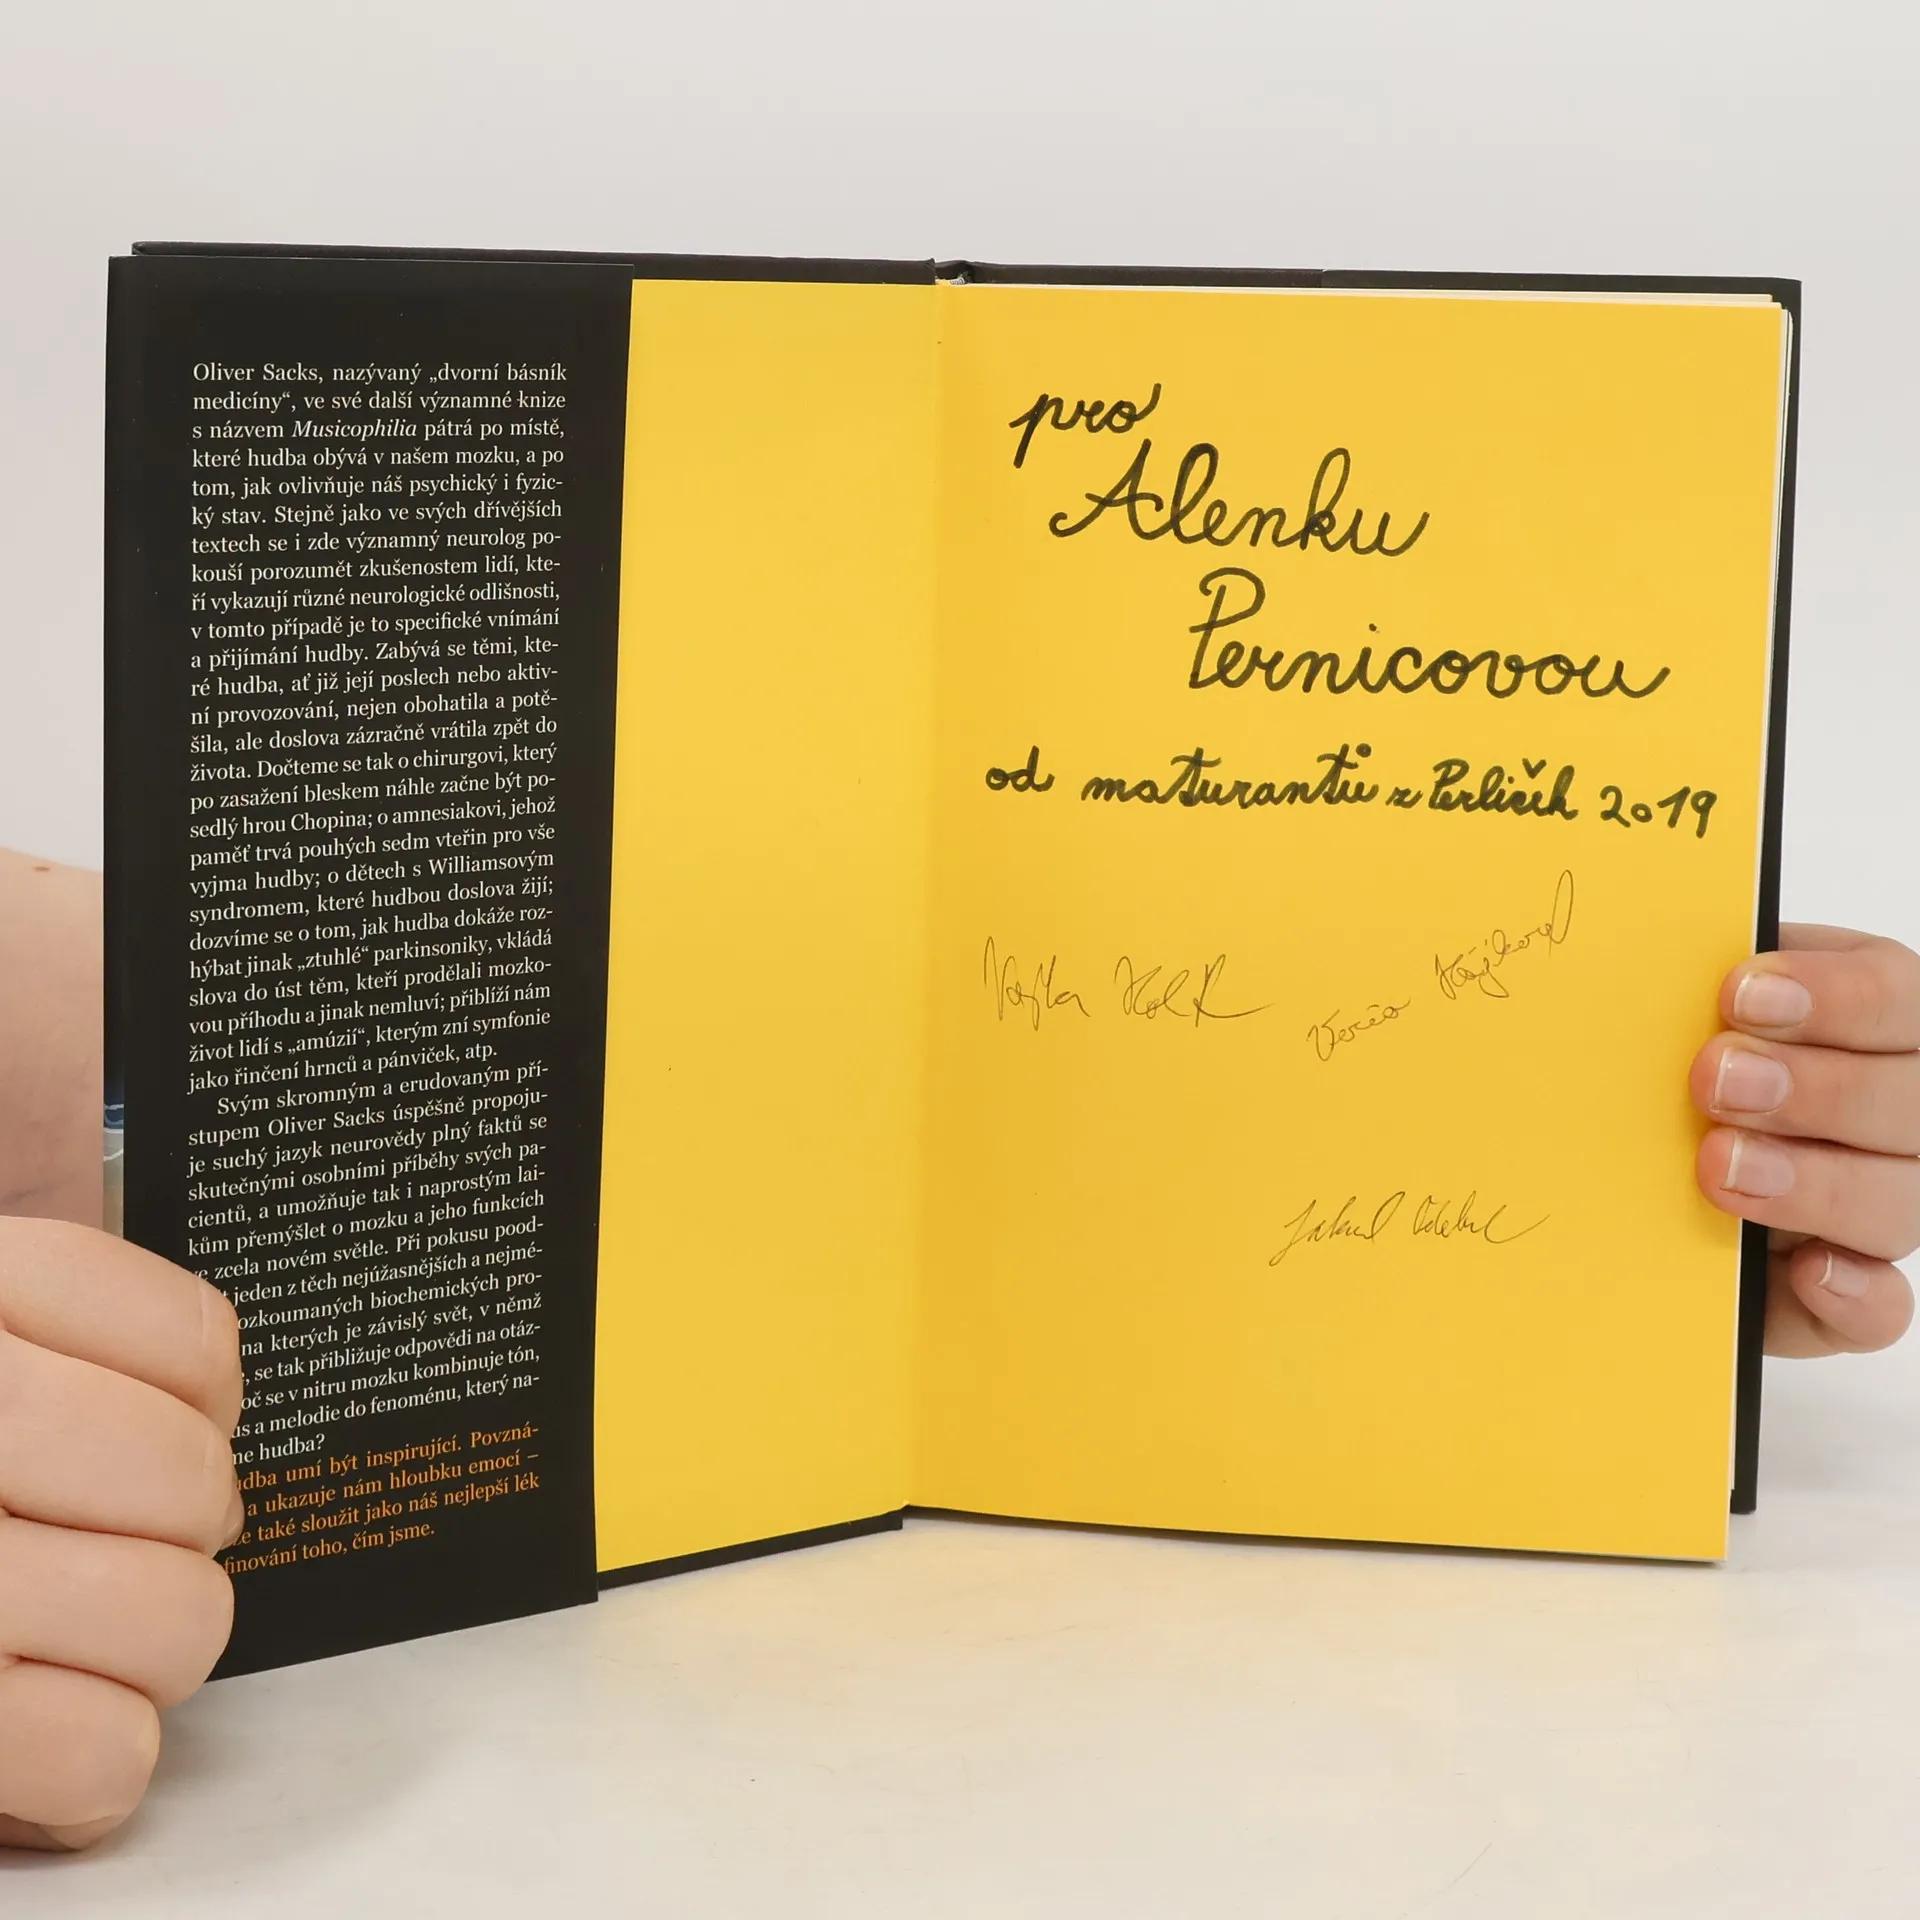 Oliver Sacks, nazývaný „dvorní básník
medicíny“, ve své další významné knize
s názvem Musicophilia pátrá po místě,
které hudba obývá v našem mozku, a po
tom, jak ovlivňuje náš psychický i fyzic-
ký stav. Stejně jako ve svých dřívějších
textech se i zde významný neurolog po-
kouší porozumět zkušenostem lidí, kte-
ří vykazují různé neurologické odlišnosti,
v tomto případě je to specifické vnímání
a přijímání hudby. Zabývá se těmi, kte-
ré hudba, ať již její poslech nebo aktiv-
ní provozování, nejen obohatila a potě-
šila, ale doslova zázračně vrátila zpět do
života. Dočteme se tak o chirurgovi, který
po zasažení bleskem náhle začne být po-
sedlý hrou Chopina; o amnesiakovi, jehož
paměť trvá pouhých sedm vteřin pro vše
vyjma hudby; o dětech s Williamsovým
syndromem, které hudbou doslova žijí;
dozvíme se o tom, jak hudba dokáže roz-
hýbat jinak „ztuhlé“ parkinsoniky, vkládá
slova do úst těm, kteří prodělali mozko-
vou příhodu a jinak nemluví; přiblíží nám
život lidí s „amúzií“, kterým zní symfonie
jako řinčení hrnců a pánviček, atp.
Svým skromným a erudovaným pří-
stupem Oliver Sacks úspěšně propoju-
je suchý jazyk neurovědy plný faktů se
skutečnými osobními příběhy svých pa-
cientů, a umožňuje tak i naprostým lai-
kům přemýšlet o mozku a jeho funkcích
ve zcela novém světle. Při pokusu pood-
jeden z těch nejúžasnějších a nejmé-
ozkoumaných biochemických pro-
na kterých je závislý svět, v němž
, se tak přibližuje odpovědi na otáz-
oč se v nitru mozku kombinuje tón,
us a melodie do fenoménu, který na-
me hudba?
udba umí být inspirující. Povzná-
a ukazuje nám hloubku emocí –
že také sloužit jako náš nejlepší lék
finování toho, čím jsme.
pro
Alenku
Pernicovou
od maturantů z Perliček 2019